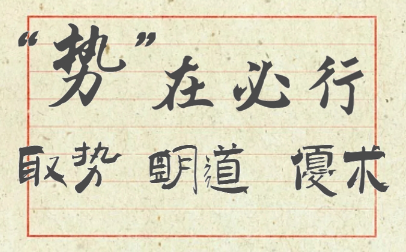 “势”在必行
取势 明道 優术